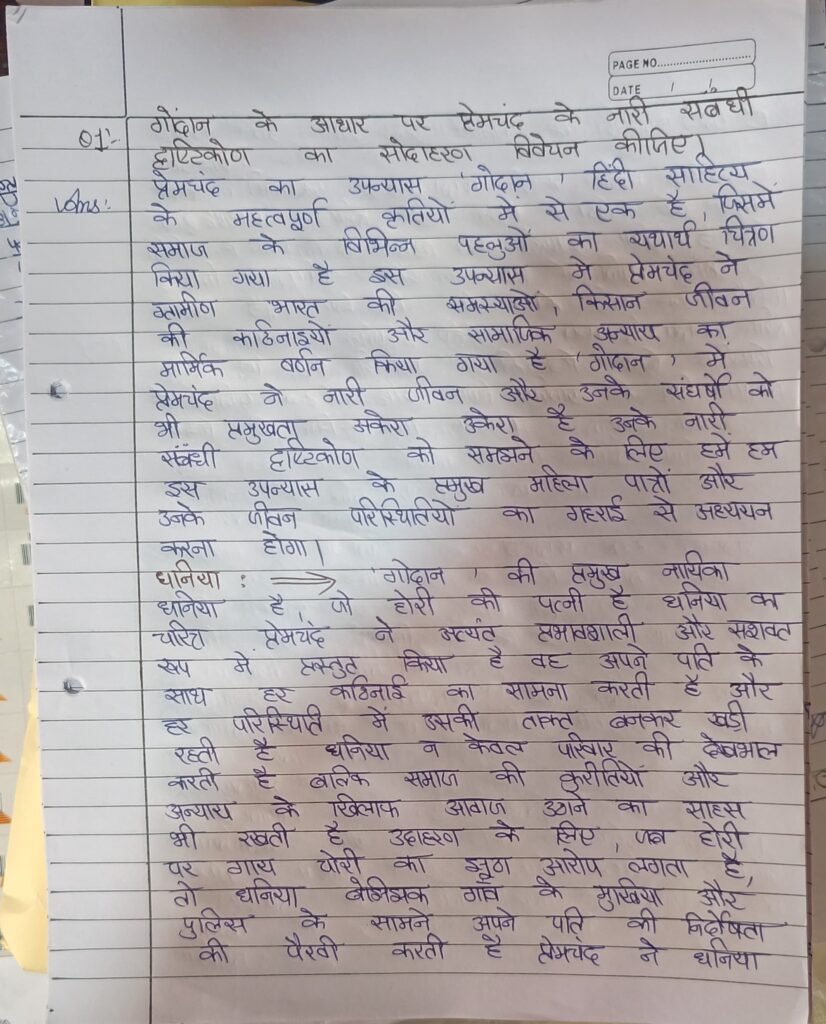 PAGE NO.
DATE / /
Q1:- गोदान के आधार पर प्रेमचंद के नारी संबंधी
दृष्टिकोण का सोदाहरण विवेचन कीजिए।
Ans:- प्रेमचंद का उपन्यास 'गोदान' हिंदी साहित्य
के महत्वपूर्ण कृतियों में से एक है, जिसमें
समाज के विभिन्न पहलुओं का यथार्थ चित्रण
किया गया है इस उपन्यास में प्रेमचंद ने
ग्रामीण भारत की समस्याओं, किसान जीवन
की कठिनाइयों और सामाजिक अन्याय का
मार्मिक वर्णन किया गया है 'गोदान' में
प्रेमचंद ने नारी जीवन और उनके संघर्षों को
भी प्रमुखता अकेरा उकेरा है उनके नारी
संबंधी दृष्टिकोण को समझने के लिए हमें हम
इस उपन्यास के प्रमुख महिला पात्रों और
उनके जीवन परिस्थितियों का गहराई से अध्ययन
करना होगा।
धनिया : ⟹ 'गोदान' की प्रमुख नायिका
धनिया है, जो होरी की पत्नी है धनिया का
चरित्र प्रेमचंद ने अत्यंत प्रभावशाली और सशक्त
रूप में प्रस्तुत किया है वह अपने पति के
साथ हर कठिनाई का सामना करती है और
हर परिस्थिती में उसकी ताकत बनकर खड़ी
रहती है धनिया न केवल परिवार की देखभाल
करती है बल्कि समाज की कुरीतियों और
अन्याय के खिलाफ आवाज उठाने का साहस
भी रखती है उदाहरण के लिए, जब होरी
पर गाय चोरी का झूठा आरोप लगता है,
तो धनिया बेझिझक गाँव के मुखिया और
पुलिस के सामने अपने पति की निर्दोषता
की पैरवी करती है प्रेमचंद ने धनिया